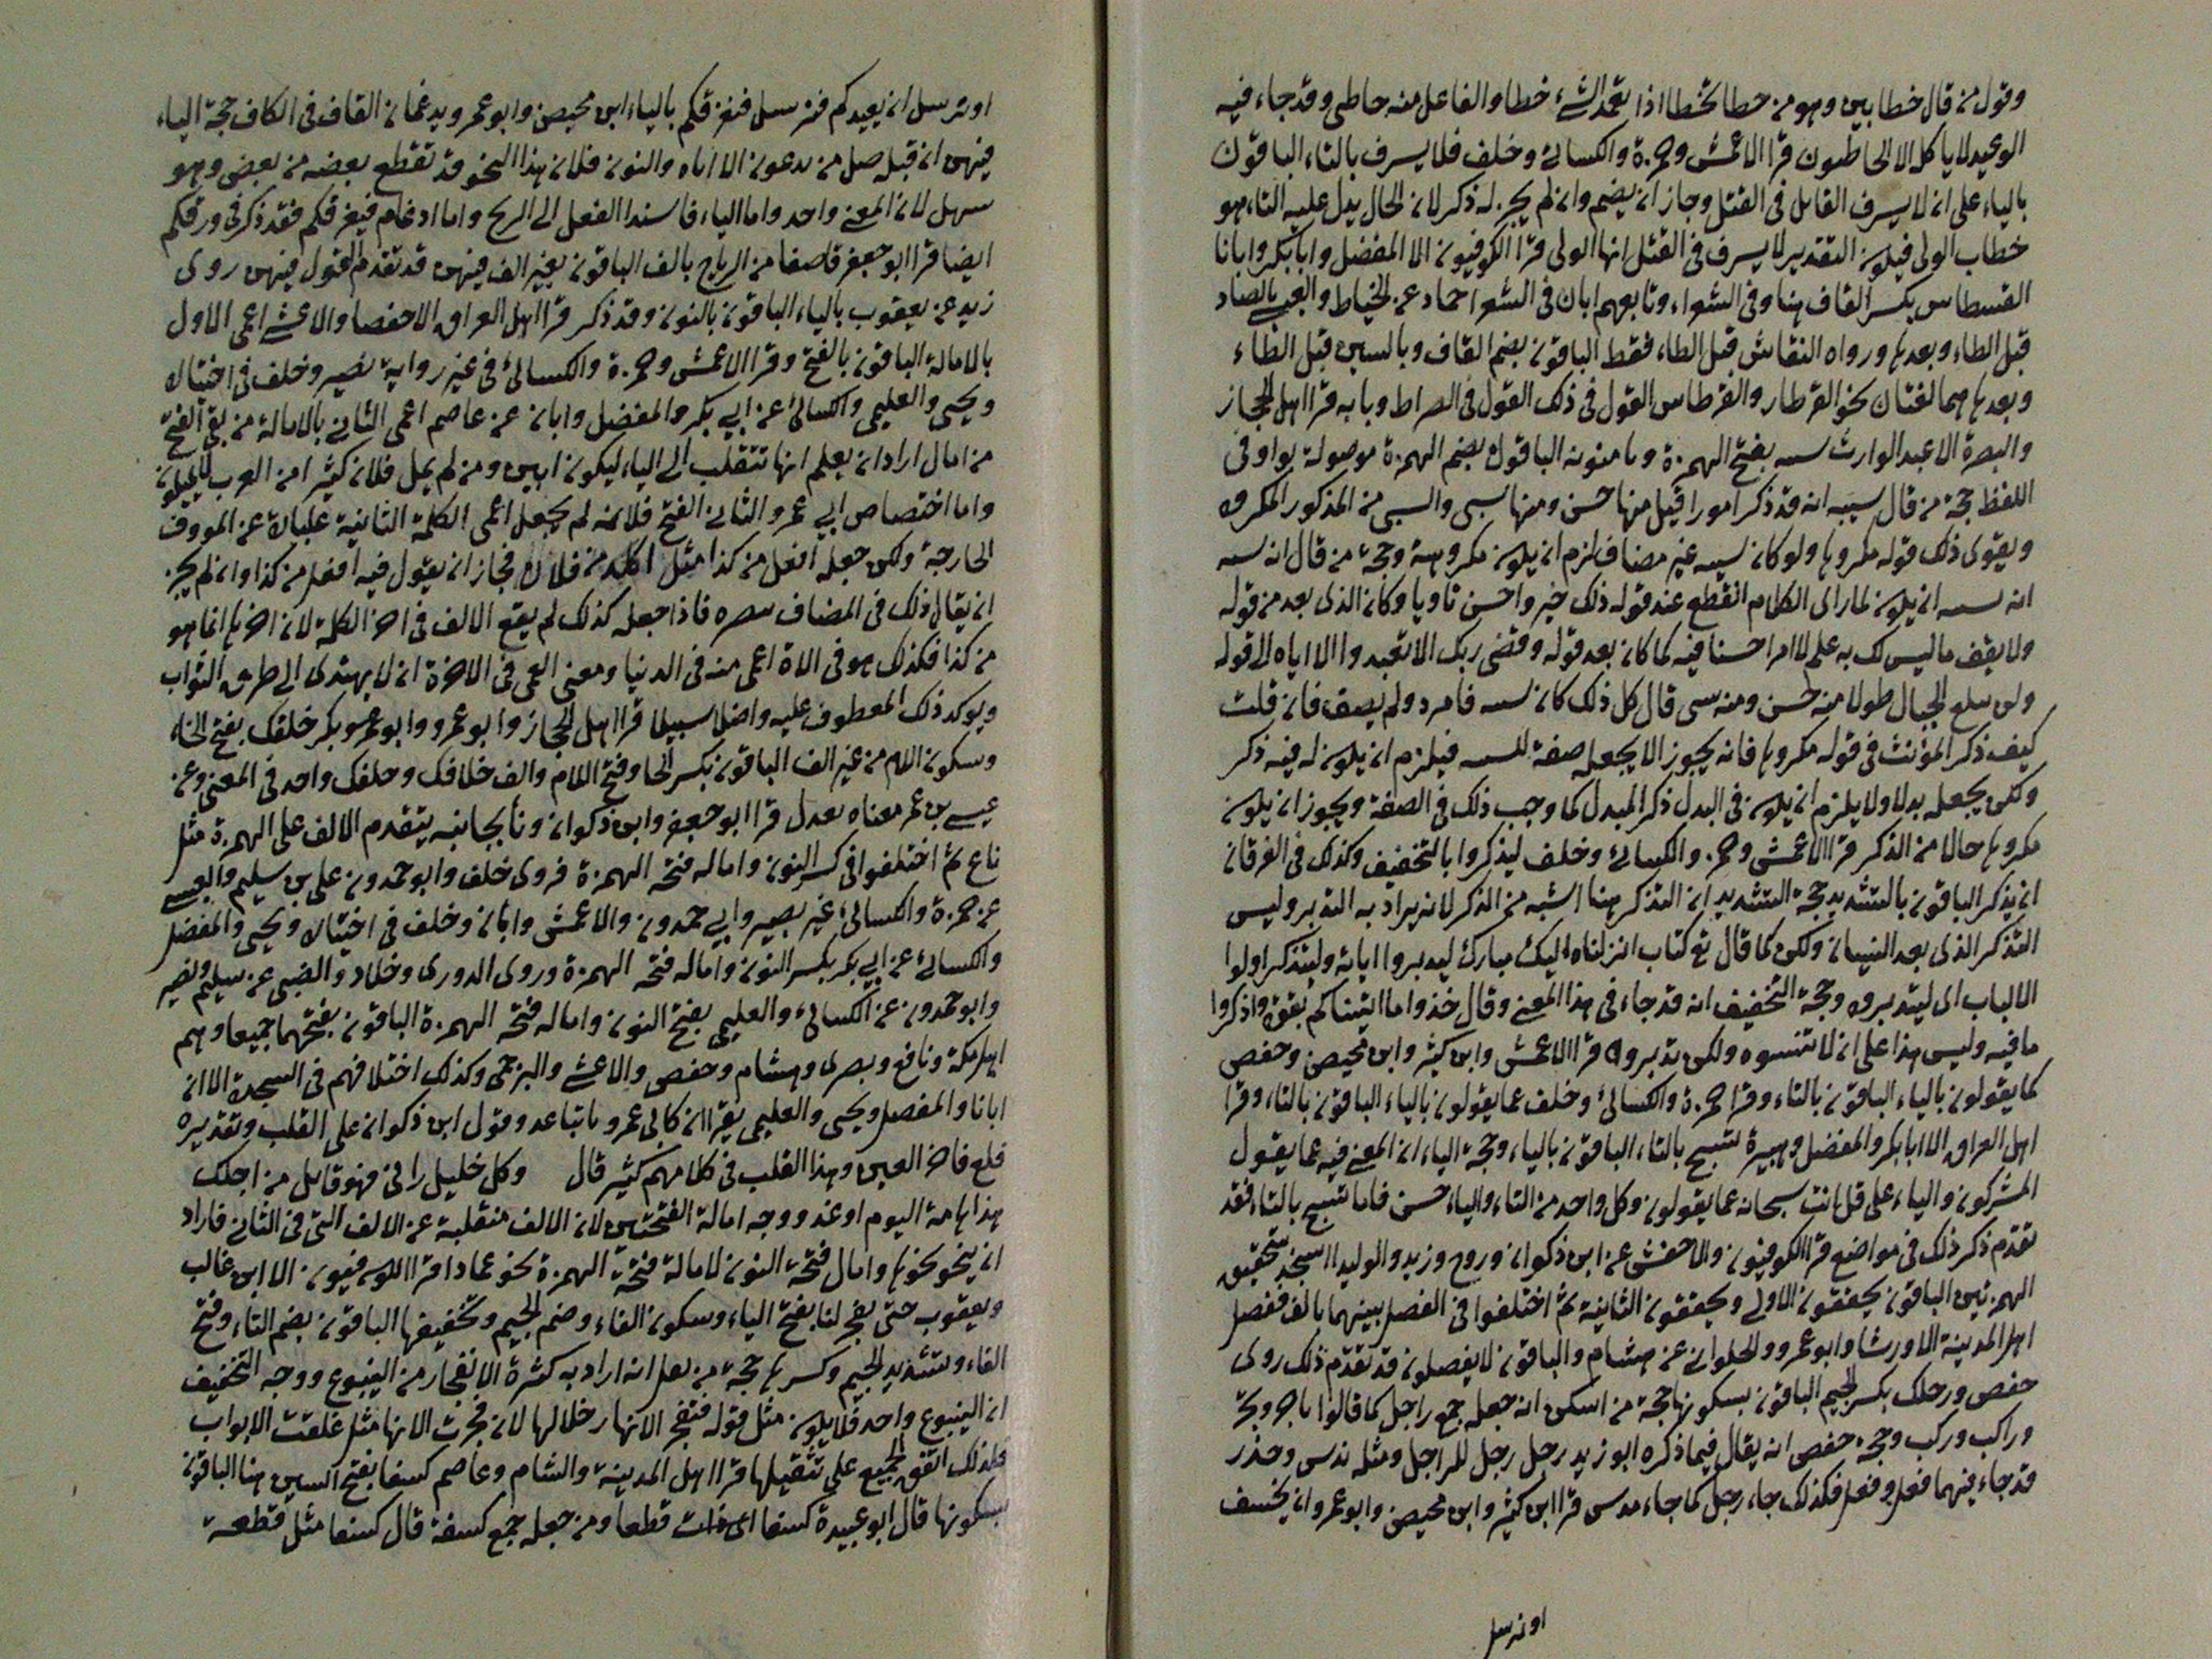 وقول من قال خطا بين وهو من خطا يخطا اذا تعمد الشئ خطا والفاعل منه خاطى وقد جاء فيه
الوعيد لا ياكله الا الخاطيون قرا الاعمش وحمزة والكسائى وخلف فلا يسرف بالتاء الباقون
بالياء على انه لا يسرف القاتل فى القتل وجاز ان يضم وان لم يجر له ذكر لان الحال يدل عليه التاء هو
خطاب الولى فيكون التقدير لا يسرف فى القتل ايها الولى قرا الكوفيون الا المفضل وابا بكر وابانا
القسطاس بكسر القاف هنا وفى الشعراء وتابعهم ابان فى الشعرا حماد عن الخياط والعبسى بالصاد
قبل الطاء وبعدها ورواه النقاش قبل الطاء فقط الباقون بضم القاف وبالسين قبل الطاء
وبعدها هما لغتان نحو القرطاس والقرطاس القول فى ذلك القول فى الصراط وبابه قرا اهل الحجاز
والبصرة الا عبد الوارث سيه بفتح الهمزة وتا منونه الباقون بضم الهمزة موصولة بواو فى
اللفظ حجة من قال سيئه انه قد ذكر امورا قبل منها حسن ومنها سيى والسيى من المذكور المكروه
ويقوى ذلك قوله مكروها ولو كان سيه غير مضاف لزم ان يكون مكروهة وحجة من قال ان سيه
انه سيه ان يكون لما راى الكلام انقطع عند قوله ذلك خير واحسن تاويلا وكان الذى بعد من قوله
ولا تقف ما ليس لك به علم لا امرا حسنا فيه كما كان بعد قوله وقضى ربك الا تعبدوا الا اياه الى قوله
ولن تبلغ الجبال طولا منه حسن ومنه سى قال كل ذلك كان سيه فامرد ولم يضف فان قلت
كيف ذكر المؤنث فى قوله مكروها فانه يجوز الا يجعله صفة للسيه فيلزم ان يكون له فيه ذكر
ولكن يجعله بدلا ولا يلزم ان يكون فى البدل ذكر المبدل كما وجب ذلك فى الصفة ويجوز ان يكون
مكروها حالا من الذكر قرا الاعمش وحمزة والكسائى وخلف ليذكروا بالتخفيف وكذلك فى الفرقان
ان يذكر الباقون بالتشديد حجة التشديد ان التذكر هنا اشبه من الذكر لانه يراد به التدبر وليس
التذكر الذى بعد النسيان ولكن كما قال تع كتاب انزلناه اليك مبارك ليدبروا اياته وليتذكر اولوا
الالباب اى ليتدبروه وحجة التخفيف انه قد جاء فى هذا المعنى وقال خذوا ما اتيناكم بقوة واذكروا
ما فيه وليس هذا على ان لا تنسوه ولكن تدبروه قرا الاعمش وابن كثير وابن محيصن وحفص
كما يقولون بالياء الباقون بالتاء وقرا حمزة والكسائى وخلف عما يقولون بالياء الباقون بالتاء وقرا
اهل العراق الا ابا بكر والمفضل وهبيرة تسبح بالتاء الباقون بالياء وحجة الياء ان المعنى فيه عما يقول
المشركون والياء على قل انت سبحانه عما يقولون وكل واحد من التاء والياء حسن فاما تسبح بالتاء فقد
تقدم ذكر ذلك فى مواضع قرا الكوفيون والاخفش عن ابن ذكوان وروح وزيد والوليد ااسجد بتحقيق
الهمزتين الباقون يحققون الاولى ويخففون الثانية ثم اختلفوا فى الفصل بينهما بالف ففصل
اهل المدينة الا ورشا وابو عمرو والحلوانى عن هشام والباقون لا يفصلون قد تقدم ذلك روى
حفص ورجلك بكسر الجيم الباقون بسكونها حجة من اسكن انه جعله جمع راجل كما قالوا تاجر وتجر
وراكب وركب وحجة حفص انه يقال فيما ذكره ابو زيد رجل رجل للراجل ومثله ندس وحذر
قد جاء فيهما فعل وفعل فكذلك جاء رجل كما جاء ندس قرا ابن كثير وابن محيصن وابو عمرو ان نخسف
او نرسل
او نرسل ان نعيدكم فنرسل فنغرقكم بالياء ابن محيصن وابو عمرو ويدغمان القاف فى الكاف حجة الياء
فيهن ان قبله ضل من تدعون الا اياه والنون فلان هذا النحو قد تقطع بعضه من بعض وهو
سهل لان المعنى واحد واما الياء فاسند الفعل الى الريح واما ادغام فيغرقكم فقد ذكر فى ورقكم
ايضا قرا ابو جعفر قاصفا من الرياح بالف الباقون بغير الف فيهن قد تقدم القول فيهن روى
زيد عن يعقوب بالياء الباقون بالنون وقد ذكر قرا اهل العراق الا حفصا والاعشى اعمى الاول
بالامالة الباقون بالفتح وقرا الاعمش وحمزة والكسائى فى غير رواية نصير وخلف فى اختياره
ويحيى والعليمى والكسائى عن ابى بكر والمفضل وابان عن عاصم اعمى الثانى بالامالة من بقى الفتح
من امال اراد ان يعلم انها تنقلب الى الياء ليكون ابين ومن لم يمل فلان كثيرا من العرب لا يميلون
واما اختصاص ابى عمرو الثانى الفتح فلانه لم يجعل اعمى الكلمة الثانية عبارة عن الموؤف
الجارحة ولكن جعله افعل من كذا مثل ابلد من فلان فجاز ان يقول فيه افعل من كذا وان لم يجز
ان يقال ذلك فى المضاف بصره فاذا جعله كذلك لم يقع الالف فى اخر الكلمة لان اخرها انما هو
من كذا فكذلك هو فى الاخرة اعمى منه فى الدنيا ومعنى العمى فى الاخرة ان لا يهتدى الى طريق الثواب
ويوكد ذلك المعطوف عليه واضل سبيلا قرا اهل الحجاز وابو عمرو وابو بكر خلفك بفتح الخاء
وسكون اللام من غير الف الباقون بكسر الخا وفتح اللام والف خلافك وخلفك واحد فى المعنى وعن
عيسى بن عمر معناه بعدك قرا ابو جعفر وابن ذكوان ونا بجانبه بتقدم الالف على الهمزة مثل
ناع ثم اختلفوا فى كسر النون واماله فتحه الهمزة فروى خلف وابو حمدون على بن سليم والعبسى
عن حمزة والكسائى غير نصير وابى حمدون والاعمش وابان وخلف فى اختياره ويحيى والمفضل
والكسائى عن ابى بكر بكسر النون واماله فتحه الهمزة وروى الدورى وخلاد والضبى عن سليم ونصير
وابو حمدون عن الكسائى والعليمى بفتح النون واماله فتحه الهمزة الباقون بفتحهما جميعا وهم
اهل مكة ونافع وبصرى وهشام وحفص والاعشى والبرجمى وكذلك اختلافهم فى السجدة الا ان
ابانا والمفضل ويحيى والعليمى يقران كابى عمرو با تباعد وقول ابن ذكوان على القلب وتقديره
فلع فاخر العين وهذا القلب فى كلامهم كثير قال وكل خليل رانى فهو قايل من اجلك
هذا هامة اليوم او غد ووجه امالة الفتحتين لان الالف منقلبة عن الالف التى فى الثانى فاراد
ان ينحو نحوها وامال فتحة النون لامالة فتحة الهمزة نحو عمادا قرا الكوفيون الا ابن غالب
ويعقوب حتى تفجر لنا بفتح الياء وسكون الفاء وضم الجيم وتخفيفها الباقون بضم التاء وفتح
الفاء وتشديد الجيم وكسرها حجة من ثقل انه اراد به كثرة الانفجار من الينبوع ووجه التخفيف
ان الينبوع واحد فلا يكون مثل قوله فتفجر الانهار خلالها لان فجرت الانهار مثل غلقت الابواب
فلذلك اتفق الجميع على تثقيلها قرا اهل المدينة والشام وعاصم كسفا بفتح السين هنا الباقون
بسكونها قال ابو عبيدة كسفا اى قطعا ومن جعله جمع كسفة قال كسفا مثل قطعة